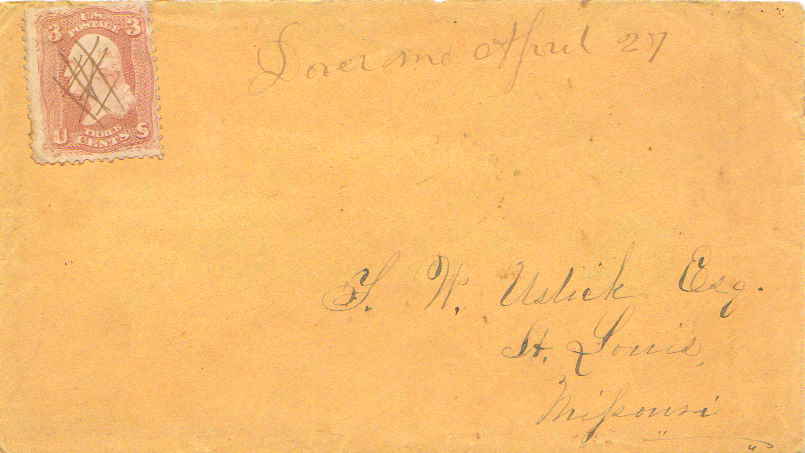 3 U.S. 3
POSTAGE
THREE
U CENTS S
Dover mo April 27
T. W. Ustick Esq.
St. Louis,
Missouri